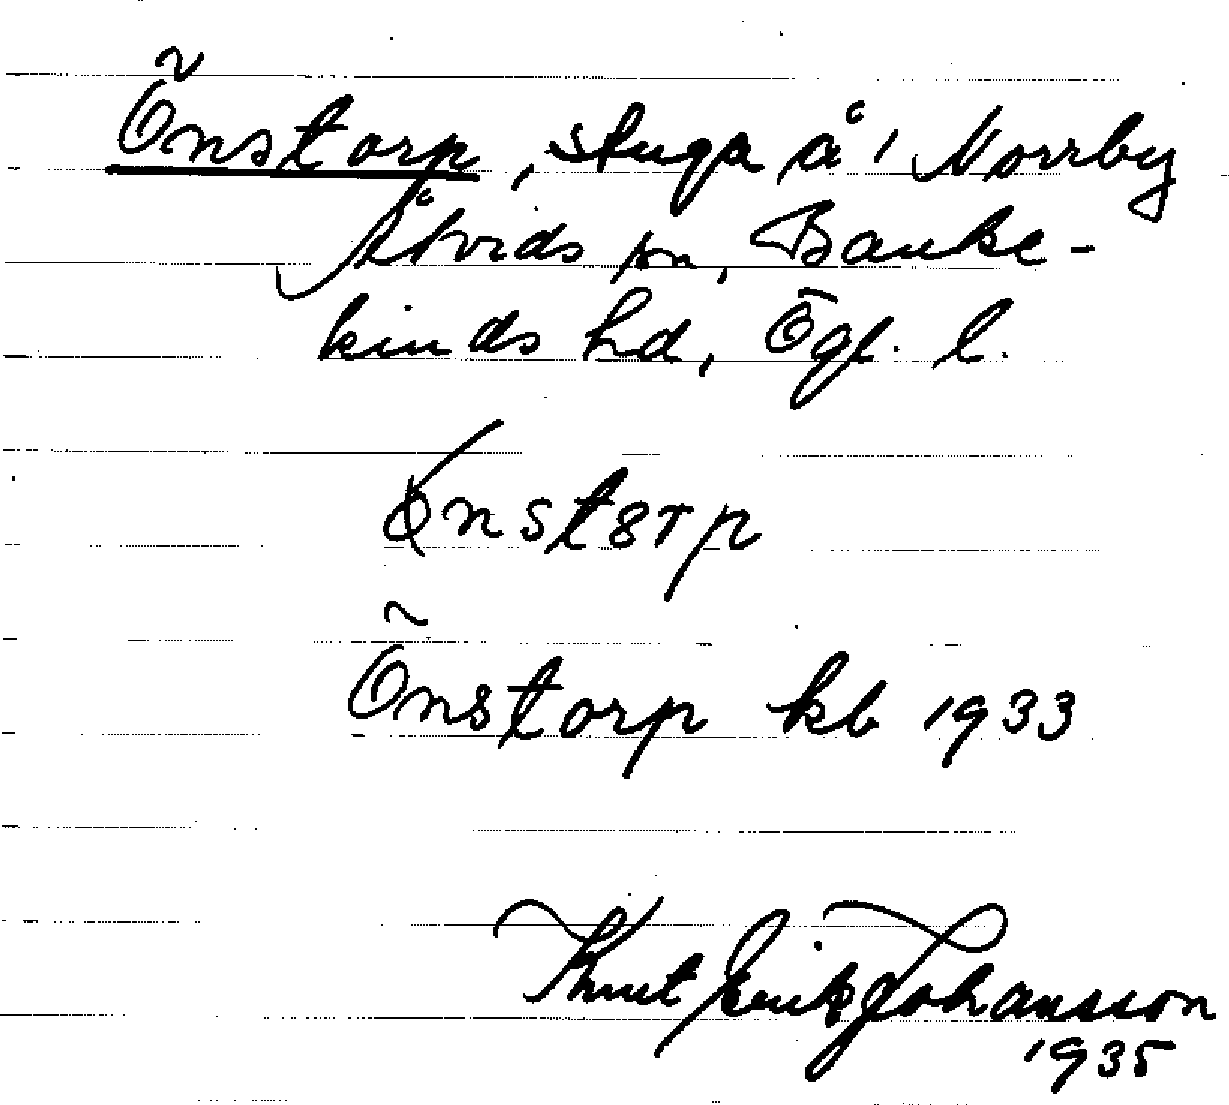 Õnstorp, stuga å 1 Norrby
Åtvids sn, Banke-
kinds hd, Ögl. l.
Önstorp
Õnstorp kb 1933
Knut Erik Johansson
1935